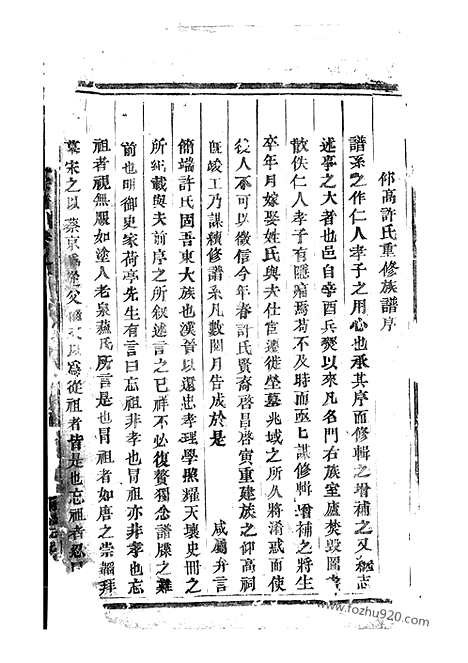 仰高許氏重修族譜序
譜系之作仁人孝子之用心也承其序而修輯之增補之又繼志
述事之大者也邑自辛酉兵燹以來凡名門右族室廬焚毀圖書
散佚仁人孝子有隱痛焉苟不及時而亟上謀修輯增補之將生
卒年月嫁娶姓氏與夫仕宦遷徙塋墓兆域之所久將淆惑而使
後人不可以徵信今年春許氏賢裔啓昌啓寅重建族之仰高祠
既竣工乃謀續修譜系凡數閱月告成於是 咸屬弁言
簡端許氏固吾東大族也漢晉以還忠孝理學照耀天壤史冊之
所紀載與夫前序之所叙述言之已祥不必復贅獨念譜牒之難
前也明御史家荷亭先生有言曰忘祖非孝也冒祖亦非孝也忘
祖者視無服如塗人老泉蘇氏所言是也冒祖者如唐之崇韜拜
墓宋之以蔡京為從父 以為從祖者皆是也忘祖者
www.fozhu920.com